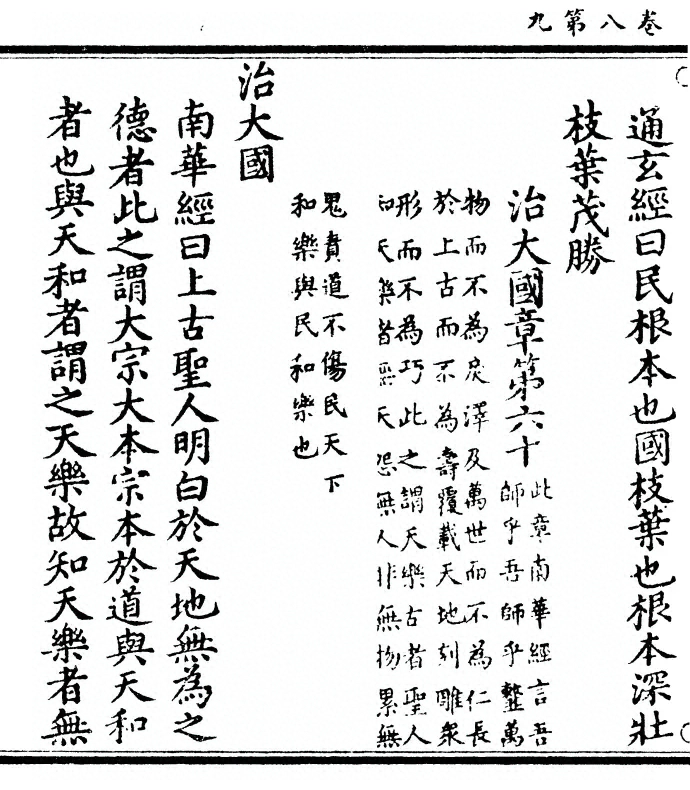 卷八第九
通玄經曰民根本也國枝葉也根本深壯
枝葉茂勝
治大國章第六十
此章南華經言吾
師乎吾師乎韲萬
物而不為戾澤及萬世而不為仁長
於上古而不為壽覆載天地刻雕衆
形而不為巧此之謂天樂古者聖人
知天樂者無天怨無人非無物累無
鬼責道不傷民天下
和樂與民和樂也
治大國
南華經曰上古聖人明白於天地無為之
德者此之謂大宗大本宗本於道與天和
者也與天和者謂之天樂故知天樂者無